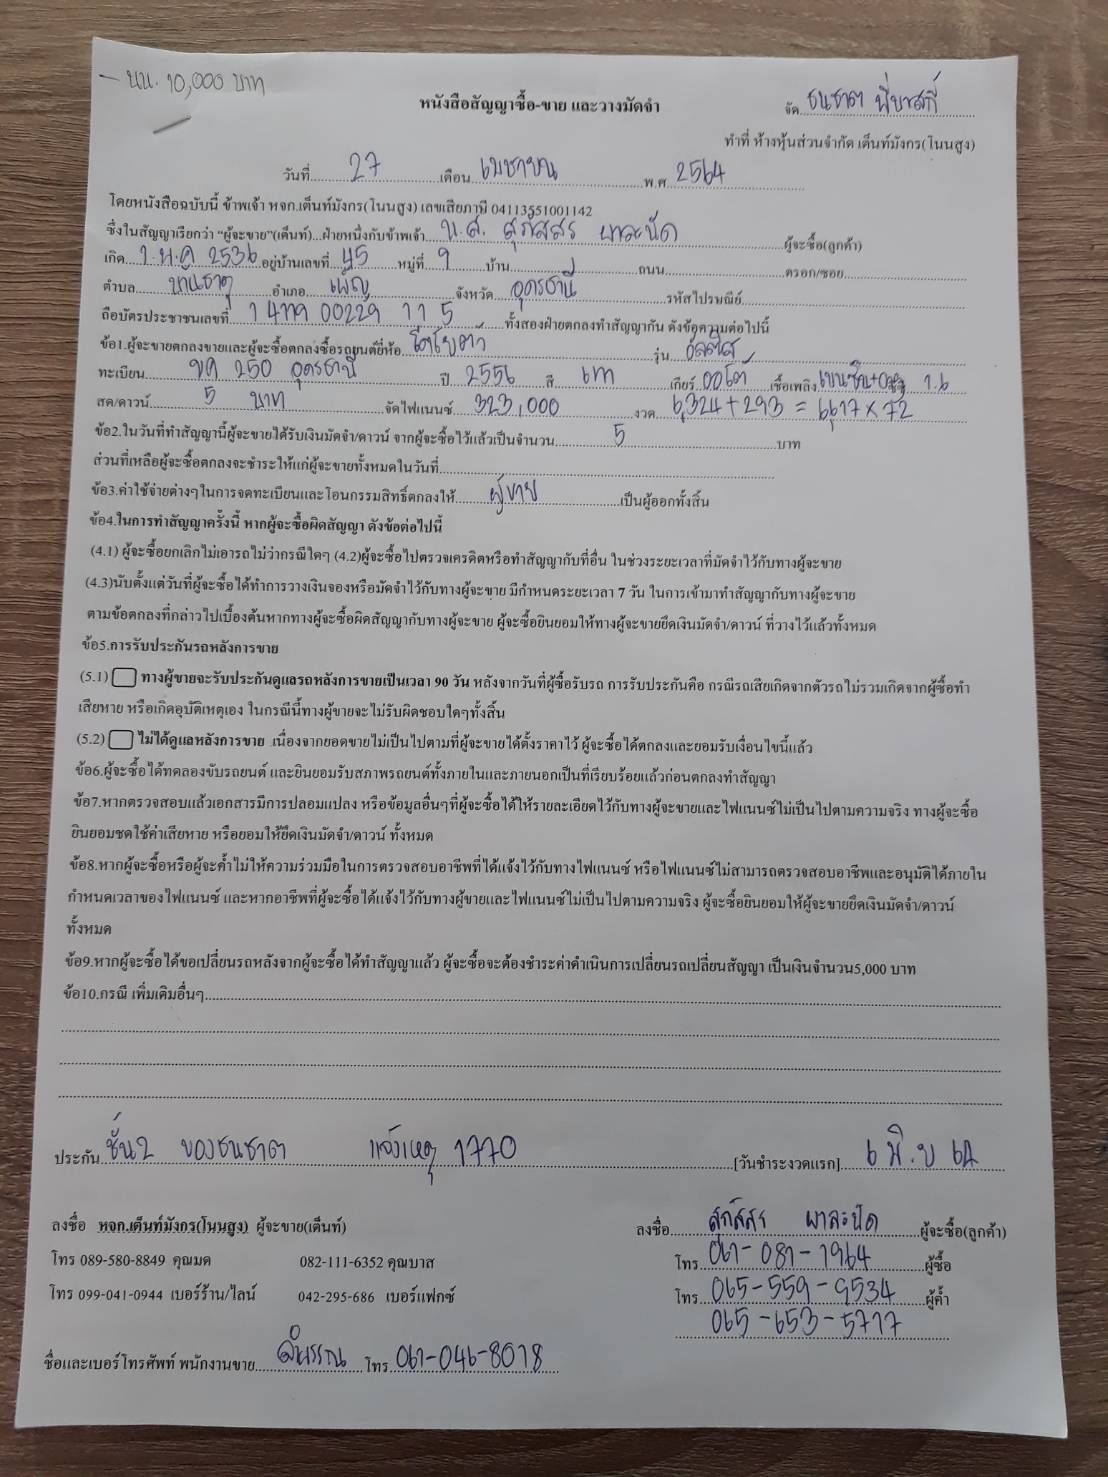 - นน. 10,000 บาท
หนังสือสัญญาซื้อ-ขาย และวางมัดจำ
จัด ธนชาต พี่
ทำที่ ห้างหุ้นส่วนจำกัด เต็นท์มังกร(โนนสูง)
วันที่ 27 เดือน เมษายน พ.ศ 2564
โดยหนังสือฉบับนี้ ข้าพเจ้า หจก.เต็นท์มังกร(โนนสูง) เลขเสียภาษี 04113551001142
ซึ่งในสัญญาเรียกว่า "ผู้จะขาย"(เต็นท์)...ฝ่ายหนึ่งกับข้าพเจ้า น.ส. สุภัสสร พาละนัด ผู้จะซื้อ(ลูกค้า)
เกิด 1 พ.ค 2536 อยู่บ้านเลขที่ 45 หมู่ที่ 9 บ้าน ถนน ตรอก/ซอย
ตำบล บ้านธาตุ อำเภอ เพ็ญ จังหวัด อุดรธานี รหัสไปรษณีย์
ถือบัตรประชาชนเลขที่ 1 4119 00229 11 5 ทั้งสองฝ่ายตกลงทำสัญญากัน ดังข้อความต่อไปนี้
ข้อ1.ผู้จะขายตกลงขายและผู้จะซื้อตกลงซื้อรถยนต์ยี่ห้อ โตโยต้า รุ่น อัลติส
ทะเบียน 250 อุดรธานี ปี 2556 สี เทา เกียร์ ออโต้ เชื้อเพลิง เบนซิน+ 1.6
สด/ดาวน์ 5 บาท จัดไฟแนนซ์ 323,000 งวด 6,324+293 = 6,617 x 72
ข้อ2.ในวันที่ทำสัญญานี้ผู้จะขายได้รับเงินมัดจำ/ดาวน์ จากผู้จะซื้อไว้แล้วเป็นจำนวน 5 บาท
ส่วนที่เหลือผู้จะซื้อตกลงจะชำระให้แก่ผู้จะขายทั้งหมดในวันที่
ข้อ3.ค่าใช้จ่ายต่างๆในการจดทะเบียนและโอนกรรมสิทธิ์ตกลงให้ ผู้ขาย เป็นผู้ออกทั้งสิ้น
ข้อ4.ในการทำสัญญาครั้งนี้ หากผู้จะซื้อผิดสัญญา ดังข้อต่อไปนี้
(4.1) ผู้จะซื้อยกเลิกไม่เอารถไม่ว่ากรณีใดๆ (4.2)ผู้จะซื้อไปตรวจเครดิตหรือทำสัญญากับที่อื่น ในช่วงระยะเวลาที่มัดจำไว้กับทางผู้จะขาย
(4.3)นับตั้งแต่วันที่ผู้จะซื้อได้ทำการวางเงินจองหรือมัดจำไว้กับทางผู้จะขาย มีกำหนดระยะเวลา 7 วัน ในการเข้ามาทำสัญญากับทางผู้จะขาย
ตามข้อตกลงที่กล่าวไปเบื้องต้นหากทางผู้จะซื้อผิดสัญญากับทางผู้จะขาย ผู้จะซื้อยินยอมให้ทางผู้จะขายยึดเงินมัดจำ/ดาวน์ ที่วางไว้แล้วทั้งหมด
ข้อ5.การรับประกันรถหลังการขาย
(5.1) ทางผู้ขายจะรับประกันดูแลรถหลังการขายเป็นเวลา 90 วัน หลังจากวันที่ผู้ซื้อรับรถ การรับประกันคือ กรณีรถเสียเกิดจากตัวรถไม่รวมเกิดจากผู้ซื้อทำ
เสียหาย หรือเกิดอุบัติเหตุเอง ในกรณีนี้ทางผู้ขายจะไม่รับผิดชอบใดๆทั้งสิ้น
(5.2) ไม่ได้ดูแลหลังการขาย เนื่องจากยอดขายไม่เป็นไปตามที่ผู้จะขายได้ตั้งราคาไว้ ผู้จะซื้อได้ตกลงและยอมรับเงื่อนไขนี้แล้ว
ข้อ6.ผู้จะซื้อได้ทดลองขับรถยนต์ และยินยอมรับสภาพรถยนต์ทั้งภายในและภายนอกเป็นที่เรียบร้อยแล้วก่อนตกลงทำสัญญา
ข้อ7.หากตรวจสอบแล้วเอกสารมีการปลอมแปลง หรือข้อมูลอื่นๆที่ผู้จะซื้อได้ให้รายละเอียดไว้กับทางผู้จะขายและไฟแนนซ์ไม่เป็นไปตามความจริง ทางผู้จะซื้อ
ยินยอมชดใช้ค่าเสียหาย หรือยอมให้ยึดเงินมัดจำ/ดาวน์ ทั้งหมด
ข้อ8.หากผู้จะซื้อหรือผู้จะค้ำไม่ให้ความร่วมมือในการตรวจสอบอาชีพที่ได้แจ้งไว้กับทางไฟแนนซ์ หรือไฟแนนซ์ไม่สามารถตรวจสอบอาชีพและอนุมัติได้ภายใน
กำหนดเวลาของไฟแนนซ์ และหากอาชีพที่ผู้จะซื้อได้แจ้งไว้กับทางผู้ขายและไฟแนนซ์ไม่เป็นไปตามความจริง ผู้จะซื้อยินยอมให้ผู้จะขายยึดเงินมัดจำ/ดาวน์
ทั้งหมด
ข้อ9.หากผู้จะซื้อได้ขอเปลี่ยนรถหลังจากผู้จะซื้อได้ทำสัญญาแล้ว ผู้จะซื้อจะต้องชำระค่าดำเนินการเปลี่ยนรถเปลี่ยนสัญญา เป็นเงินจำนวน5,000 บาท
ข้อ10.กรณี เพิ่มเติมอื่นๆ
ประกัน ชั้น2 ของธนชาต แจ้งเหตุ 1770 [วันชำระงวดแรก] 6 มิ.ย 64
ลงชื่อ หจก.เต็นท์มังกร(โนนสูง) ผู้จะขาย(เต็นท์) ลงชื่อ สุภัสสร พาละนัด ผู้จะซื้อ(ลูกค้า)
โทร 089-580-8849 คุณมด 082-111-6352 คุณบาส โทร 061-081-1964 ผู้ซื้อ
โทร 099-041-0944 เบอร์ร้าน/ไลน์ 042-295-686 เบอร์แฟกซ์ โทร 065-559-9534 ผู้ค้ำ
065-653-5717
ชื่อและเบอร์โทรศัพท์ พนักงานขาย โทร 061-046-8018